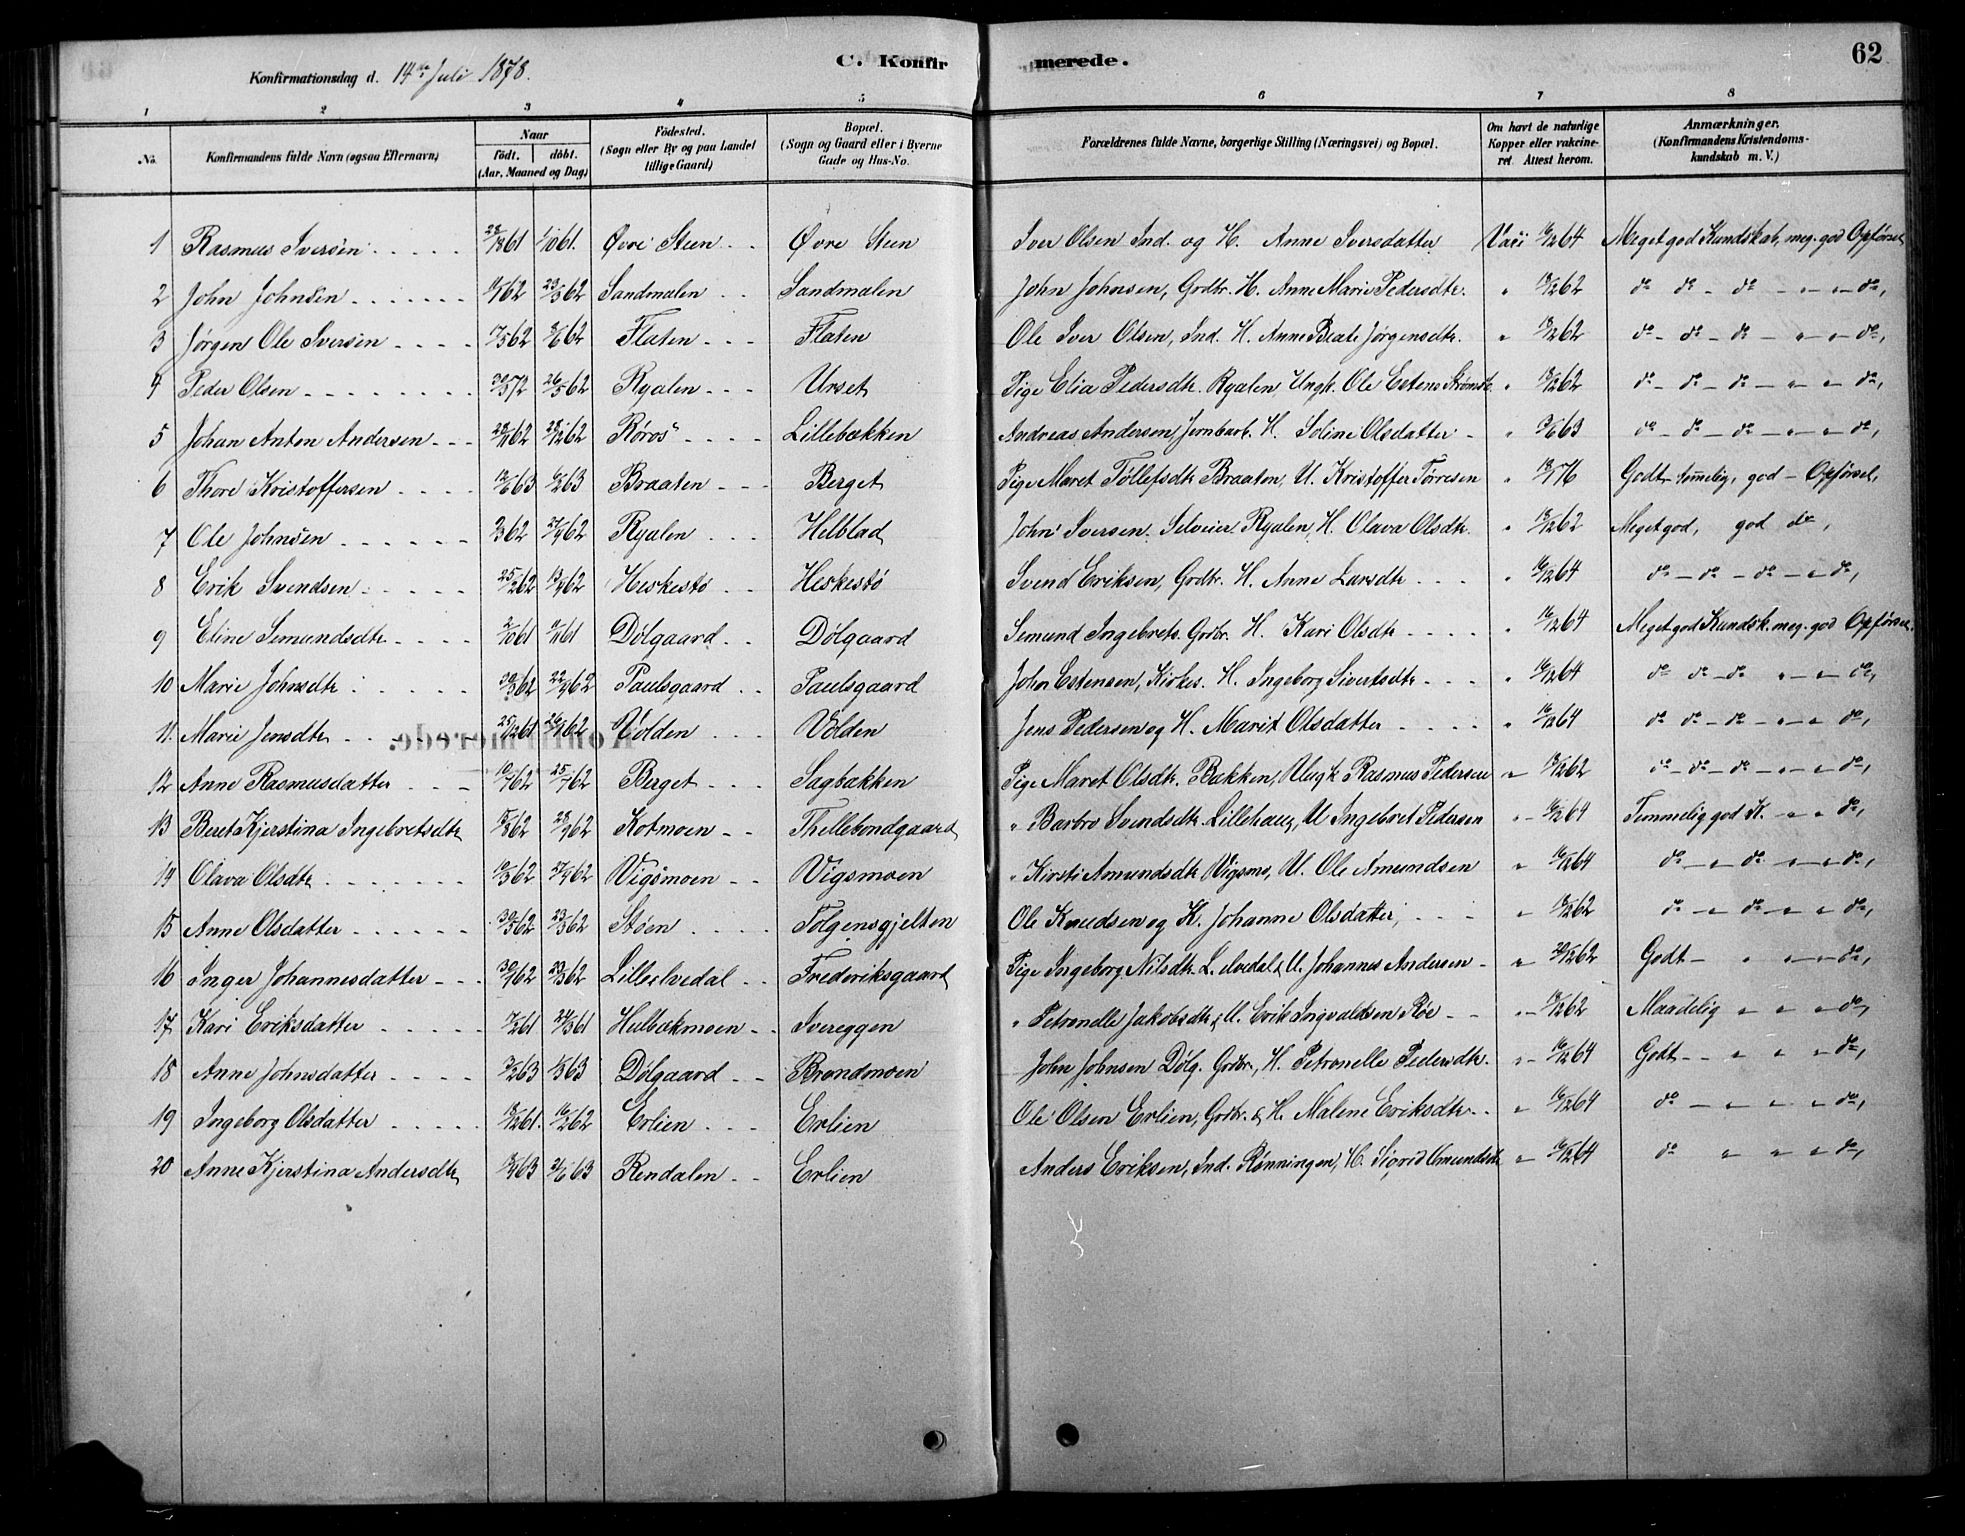 Konfirmationsdag d. 14de Juli 1878.
C. Konfirmerede.
62
1 2 3 4 5 6 7 8
No.
Konfirmandens fulde Navn (ogsaa Efternavn)
Naar
födt. döbt.
(Aar, Maaned og Dag)
Födested.
(Sogn eller By og paa Landet tillige Gaard)
Bopæl.
(Sogn og Gaard eller i Byerne Gade og Hus-No.
Forældrenes fulde Navne, borgerlige Stilling (Næringsvei) og Bopæl.
Om havt de naturlige Kopper eller vakcineret. Attest herom.
Anmærkninger.
(Konfirmandens Kristendomskundskab m. V.)
1 Rasmus Iversen Øvre Steen Øvre Steen Iver Olsen Ind. og H. Anne Iversdatter 16/12 64 Meget god Kundskab, meg. god Opførsel,
2 John Johnsen 23/3 62 Sandmalen Sandmalen John Johnsen, Grdbr. H. Anne Marie Pedersdtr. " 18/12 62 do do - do - " - " - do,
3 Jørgen Ole Iversen Flaten Flaten Ole Iver Olsen, Ind. H. Anne Beate Jørgensdtr. " 18/12 62 do - do - do - " - " - do,
4 Peder Olsen 26/5 62 Ryalen Urset Pige Elia Pedersdtr. Ryalen, Ungk. Ole Estens " 18/12 62 do - do - do - " - " do,
5 Johan Anton Andersen 28/11 62 28/12 62 Røros Lillebækken Andreas Andersen, Jernbarb. H. Soline Olsdatter " do - do - do - " - " - do,
6 Thore Kristoffersen Braaten Berget Pige Maret Tøllefsdtr Braaten, U. Kristoffer Tørresen " Godt - temmelig, god - Opførsel,
7 Ole Johnsen 27/9 62 Ryalen Helblad John Iversen. Selveier Ryalen, H. Olava Olsdtr. " 18/12 62 Meget god, god do,
8 Erik Svendsen 25/2 62 Heskestø Heskestø Svend Eriksen, Grdbr. H. Anne Larsdtr " 16/12 64 do - do - do - " do,
9 Eline Semundsdtr Dølgaard Dølgaard Semund Ingebrets. Grdbr. H. Kari Olsdtr " 16/12 64 Meget god Kundsk. meg. god Opførsel.
10 Marie Johnsdtr 30/3 62 Paulsgaard Paulsgaard John Estensen, Kirkes. H. Ingeborg Sivertsdtr " 16/12 64 do do - do " - " - do,
11. Marie Jensdtr 25/12 61 Volden Volden Jens Pedersen og H. Marit Olsdatter " do do - do - " - " do,
12 Anne Rasmusdatter Berget Sagbakken Pige Maret Olsdtr. Bakken, Ungk. Rasmus Pedersen " 18/12 62 do - do - do - " - " - do,
13 Beret Kjerstina Ingebretsdtr Kotmoen Thellebondgaard " Barbro Svendsdtr. Lillehaug, U Ingebret Pedersen " 16/12 64 Temmelig god K. " " do,
14 Olava Olsdtr. Vigsmoen Vigsmoen " Kirsti Amundsdtr Vigsmo, U. Ole Amundsen " 16/12 64 do - " - do - " - " - do,
15 Anne Olsdatter Støen Tølgensgjelten Ole Knudsen og H. Johanne Olsdatter, " 18/12 62 do - " - do - " - " - do,
16 Inger Johannesdatter Lilleelvedal Frederiksgaard Pige Ingeborg Nilsdtr. L. elvedal & U. Johannes Andersen " 20/12 62 Godt - " " - " - do,
17 Kari Eriksdatter Hulbækmoen Ivereggen " Petronelle Jakobsdtr & U. Erik Ingvaldsen Røe " 18/12 62 Maadelig " " " do,
18 Anne Johnsdatter Dølgaard Brændmoen John Johnsen Dølg. Grdbr, H. Petronelle Pedersdtr. " 16/12 64 Godt - " " - do,
19 Ingeborg Olsdatter 16/2 62 Erlien Erlien Ole Olsen Erlien, Grdbr. & H. Malene Eriksdtr. " 16/12 64 do - " - " " do,
20 Anne Kjerstina Andersdtr Rendalen Erlien Anders Eriksen, Ind. Rønningen, H. Sigrid Amundsdtr " 16/12 64 do " " " do,